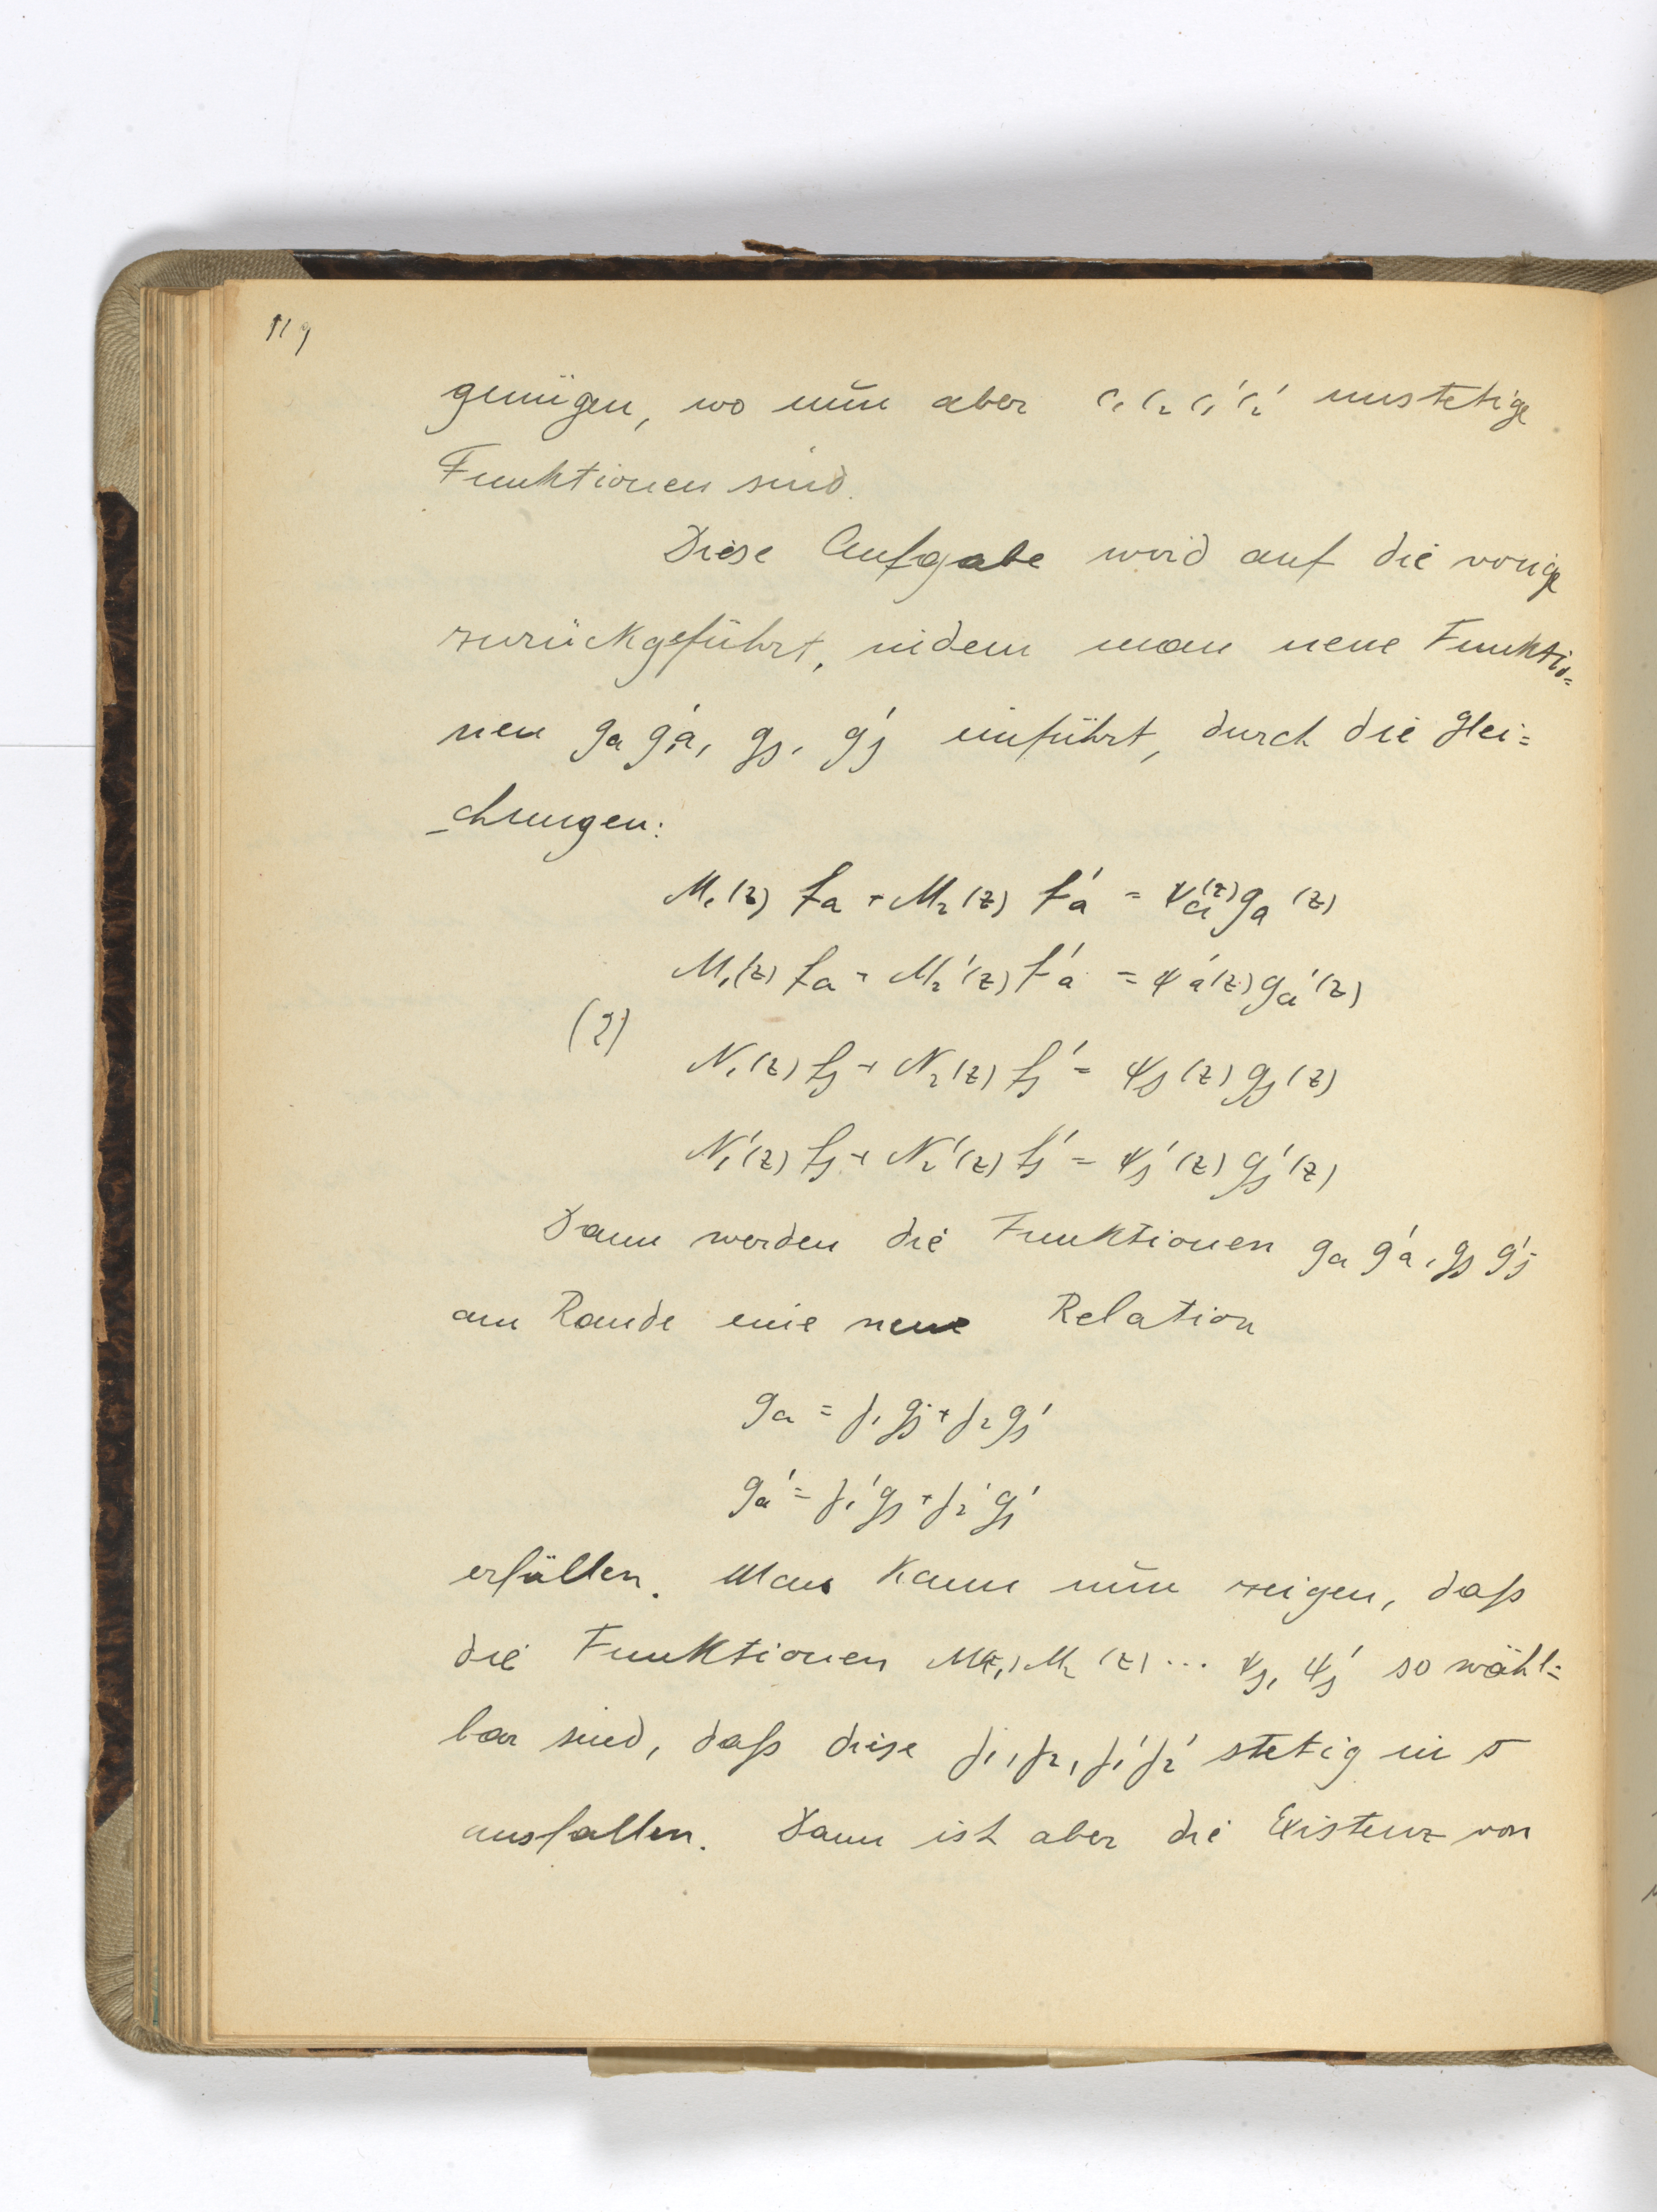 119
genügen, wo nŭn aber c₁ c₂ c₁' c₂' unstetige
Funktionen sind.
Diese Aufgabe wird auf die vorige
zurückgeführt, indem man neue Funktio=
nen gₐ gₐ', gⱼ, gⱼ' einführt, durch die Glei=
chungen:
M₁(z) fₐ + M₂(z) fₐ' = ψₐ(z) gₐ(z)
M₁'(z) fₐ + M₂'(z) fₐ' = ψₐ'(z) gₐ'(z)
(2)
N₁(z) fⱼ + N₂(z) fⱼ' = ψⱼ(z) gⱼ(z)
N₁'(z) fⱼ + N₂'(z) fⱼ' = ψⱼ'(z) gⱼ'(z)
Dann werden die Funktionen gₐ gₐ', gⱼ gⱼ'
am Rande eine neue Relation
gₐ = γ₁ gⱼ + γ₂ gⱼ'
gₐ' = γ₁' gⱼ + γ₂' gⱼ'
erfüllen. Man kann nŭn zeigen, daß
die Funktionen M₁(z), M₂(z) ... ψⱼ, ψⱼ' so wähl=
bar sind, daß diese γ₁, γ₂, γ₁' γ₂' stetig in σ
ausfallen. Dann ist aber die Existenz von